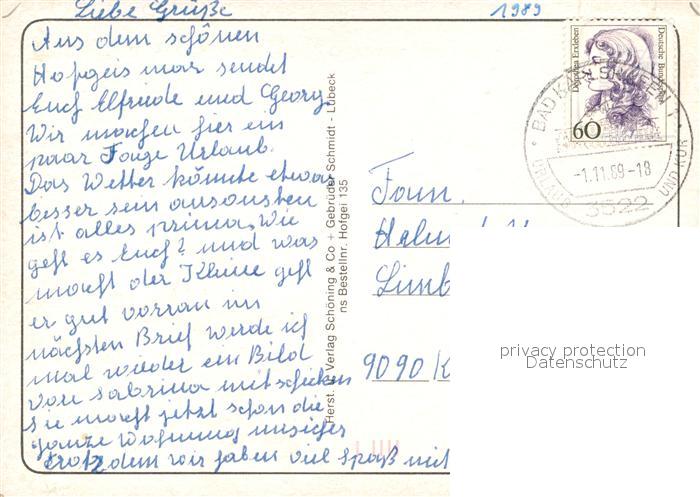 Liebe Grüße
1989
Aus dem schönen
Hofgeismar sendet
Euch Elfriede und Georg.
Wir machen hier ein
paar Tage Urlaub.
Das Wetter könnte etwas
besser sein ansonsten
ist alles prima. Wie
geht es Euch? und was
macht der Kleine geht
er gut vorran im
nächsten Brief werde ich
mal wieder ein Bild
von Sabrina mitschicken
sie macht jetzt schon die
ganze Wohnung unsicher
trotzdem wir haben viel Spaß mit
Herst. u. Verlag Schöning & Co + Gebrüder Schmidt - Lübeck
ns Bestellnr. Hofgei 135
Deutsche Bundespost
60
BAD KARLSHAFEN
-1.11.89-18
URLAUB UND KUR
3522
Fam.
Limb
9090 K
privacy protection
Datenschutz